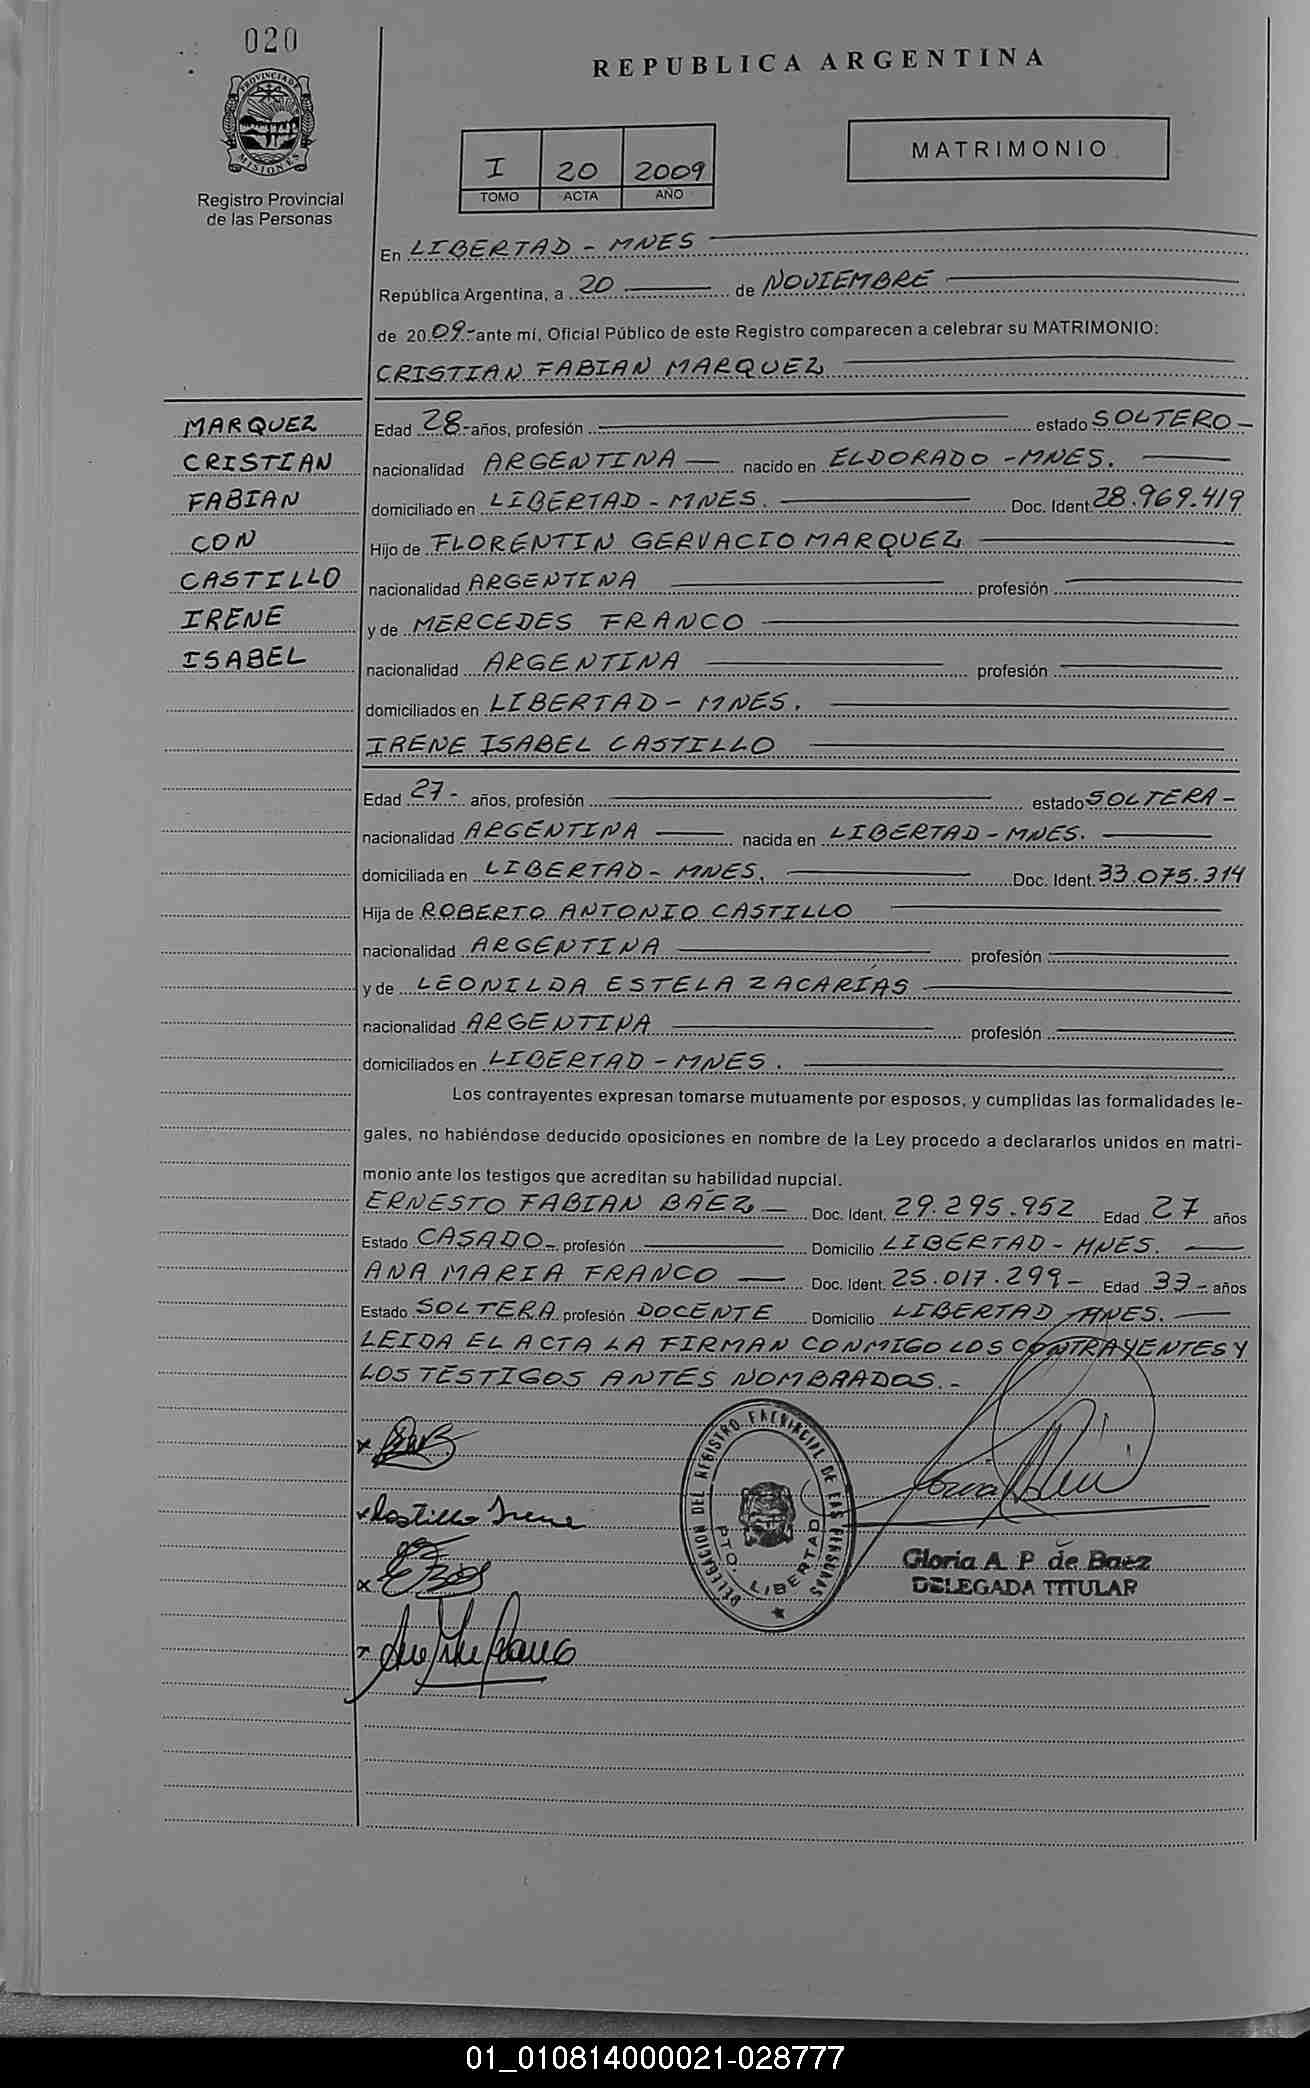 020
PROVINCIA DE MISIONES
Registro Provincial
de las Personas
REPUBLICA ARGENTINA
I 20 2009
TOMO ACTA AÑO
MATRIMONIO
En LIBERTAD - MNES
República Argentina, a 20 de NOVIEMBRE
de 2009.- ante mí, Oficial Público de este Registro comparecen a celebrar su MATRIMONIO:
CRISTIAN FABIAN MARQUEZ
MARQUEZ
CRISTIAN
FABIAN
CON
CASTILLO
IRENE
ISABEL
Edad 28.- años, profesión estado SOLTERO -
nacionalidad ARGENTINA nacido en ELDORADO - MNES.
domiciliado en LIBERTAD - MNES. Doc. Ident. 28.969.419
Hijo de FLORENTIN GERVACIO MARQUEZ
nacionalidad ARGENTINA profesión
y de MERCEDES FRANCO
nacionalidad ARGENTINA profesión
domiciliados en LIBERTAD - MNES.
IRENE ISABEL CASTILLO
Edad 27 - años, profesión estado SOLTERA -
nacionalidad ARGENTINA nacida en LIBERTAD - MNES.
domiciliada en LIBERTAD - MNES. Doc. Ident. 33.075.314
Hija de ROBERTO ANTONIO CASTILLO
nacionalidad ARGENTINA profesión
y de LEONILDA ESTELA ZACARÍAS
nacionalidad ARGENTINA profesión
domiciliados en LIBERTAD - MNES.
Los contrayentes expresan tomarse mutuamente por esposos, y cumplidas las formalidades le-
gales, no habiéndose deducido oposiciones en nombre de la Ley procedo a declararlos unidos en matri-
monio ante los testigos que acreditan su habilidad nupcial.
ERNESTO FABIAN BÁEZ Doc. Ident. 29.295.952 Edad 27 años
Estado CASADO - profesión Domicilio LIBERTAD - MNES.
ANA MARIA FRANCO Doc. Ident. 25.017.299 - Edad 33 - años
Estado SOLTERA profesión DOCENTE Domicilio LIBERTAD - MNES.
LEIDA EL ACTA LA FIRMAN CONMIGO LOS CONTRAYENTES Y
LOS TESTIGOS ANTES NOMBRADOS. -
x
x Castillo Irene
x
x
DELEGACION DEL REGISTRO PROVINCIAL DE LAS PERSONAS
PTO. LIBERTAD
Gloria A. P. de Baez
DELEGADA TITULAR
01_010814000021-028777